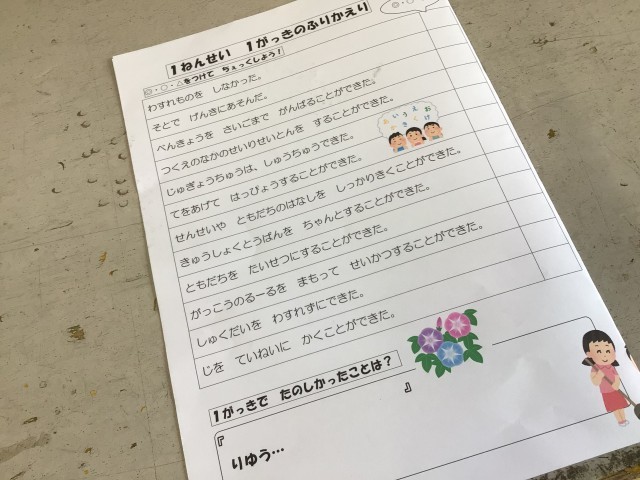 1ねんせい 1がっきのふりかえり
◎・○・△をつけて ちぇっくしよう!
わすれものを しなかった。
そとで げんきにあそんだ。
べんきょうを さいごまで がんばることができた。
つくえのなかのせいりせいとんを することができた。
じゅぎょうちゅうは、しゅうちゅうできた。
てをあげて はっぴょうすることができた。
せんせいや ともだちのはなしを しっかりきくことができた。
きゅうしょくとうばんを ちゃんとすることができた。
ともだちを たいせつにすることができた。
がっこうのるーるを まもって せいかつすることができた。
しゅくだいを わすれずにできた。
じを ていねいに かくことができた。
あいうえお
かきくけ
1がっきで たのしかったことは?
『 』
りゆう…